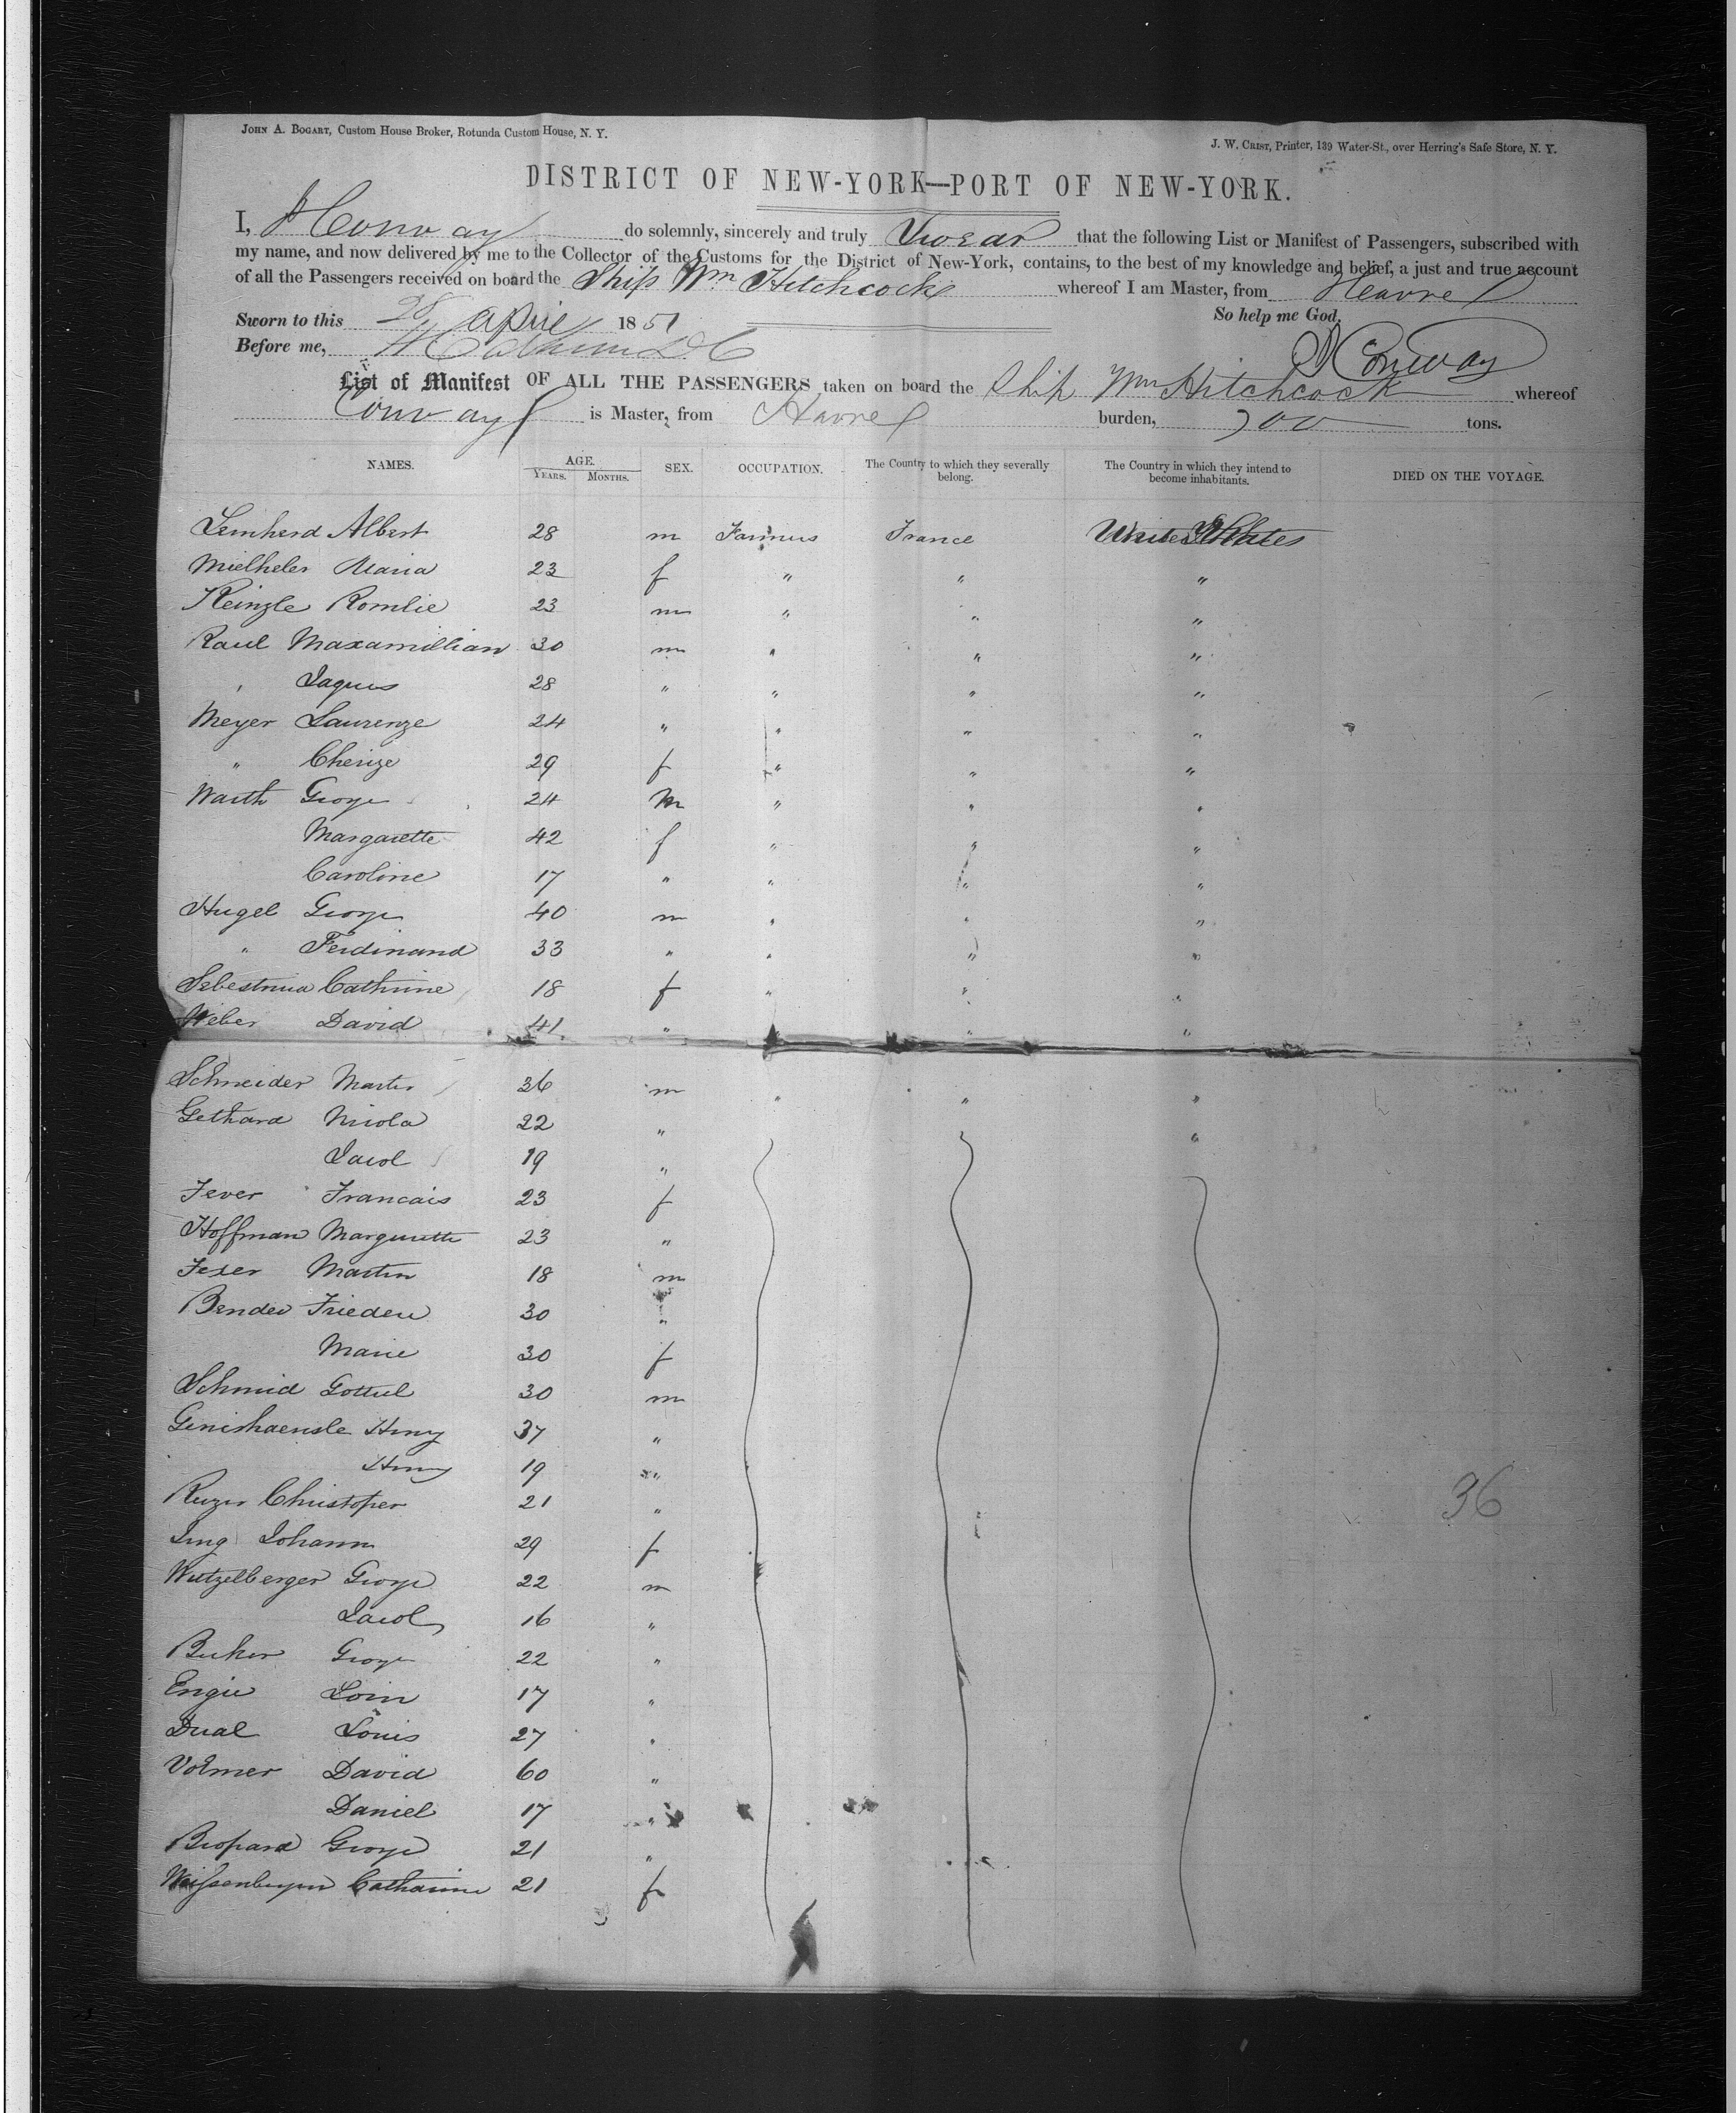 JOHN A. BOGART, Custom House Broker, Rotunda Custom House, N. Y.
J. W. CRIST, Printer, 139 Water-St., over Herring's Safe Store, N. Y.
DISTRICT OF NEW-YORK—PORT OF NEW-YORK.
I, Conway do solemnly, sincerely and truly Swear that the following List or Manifest of Passengers, subscribed with
my name, and now delivered by me to the Collector of the Customs for the District of New-York, contains, to the best of my knowledge and belief, a just and true account
of all the Passengers received on board the Ship Wm Hitchcock whereof I am Master, from Havre
Sworn to this April 1851 So help me God,
Before me, Conway
List of Manifest OF ALL THE PASSENGERS taken on board the Ship Wm Hitchcock whereof
Conway is Master, from Havre burden, 700 tons.
NAMES. AGE. YEARS. MONTHS. SEX. OCCUPATION. The Country to which they severally belong. The Country in which they intend to become inhabitants. DIED ON THE VOYAGE.
Lemherd Albert 28 m France United States
Mielheler Maria 23 f " " "
Kinzle Romlie 23 m " " "
Raul Maxamillian 30 m " " "
" Jaques 28 " " " "
Meyer Laurenze 24 " " " "
" Cherize 29 f " " "
Warth George 24 m " " "
Margarette 42 f " " "
Caroline 17 " " " "
Hugel George 40 m " " "
" Ferdinand 33 " " " "
Cathrine 18 f " " "
Weber David 41 " " "
Schneider Martin 36 m " " "
Gethard Nicola 22 " "
Jacob 19 "
Fever Francais 23 f
Hoffman Margurette 23 "
Fexer Martin 18 m
Bender Frieden 30 "
Marie 30 f
Schmid Gottul 30 m
Henry 37 "
Henry 19 "
Christoper 21 "
Jung Johann 29 f
Wutzelberger George 22 m
Jacob 16 "
Beker George 22 "
Engie 17 "
Dual Louis 27 "
Volmer David 60 "
Daniel 17 "
George 21 "
Catharine 21 f
36